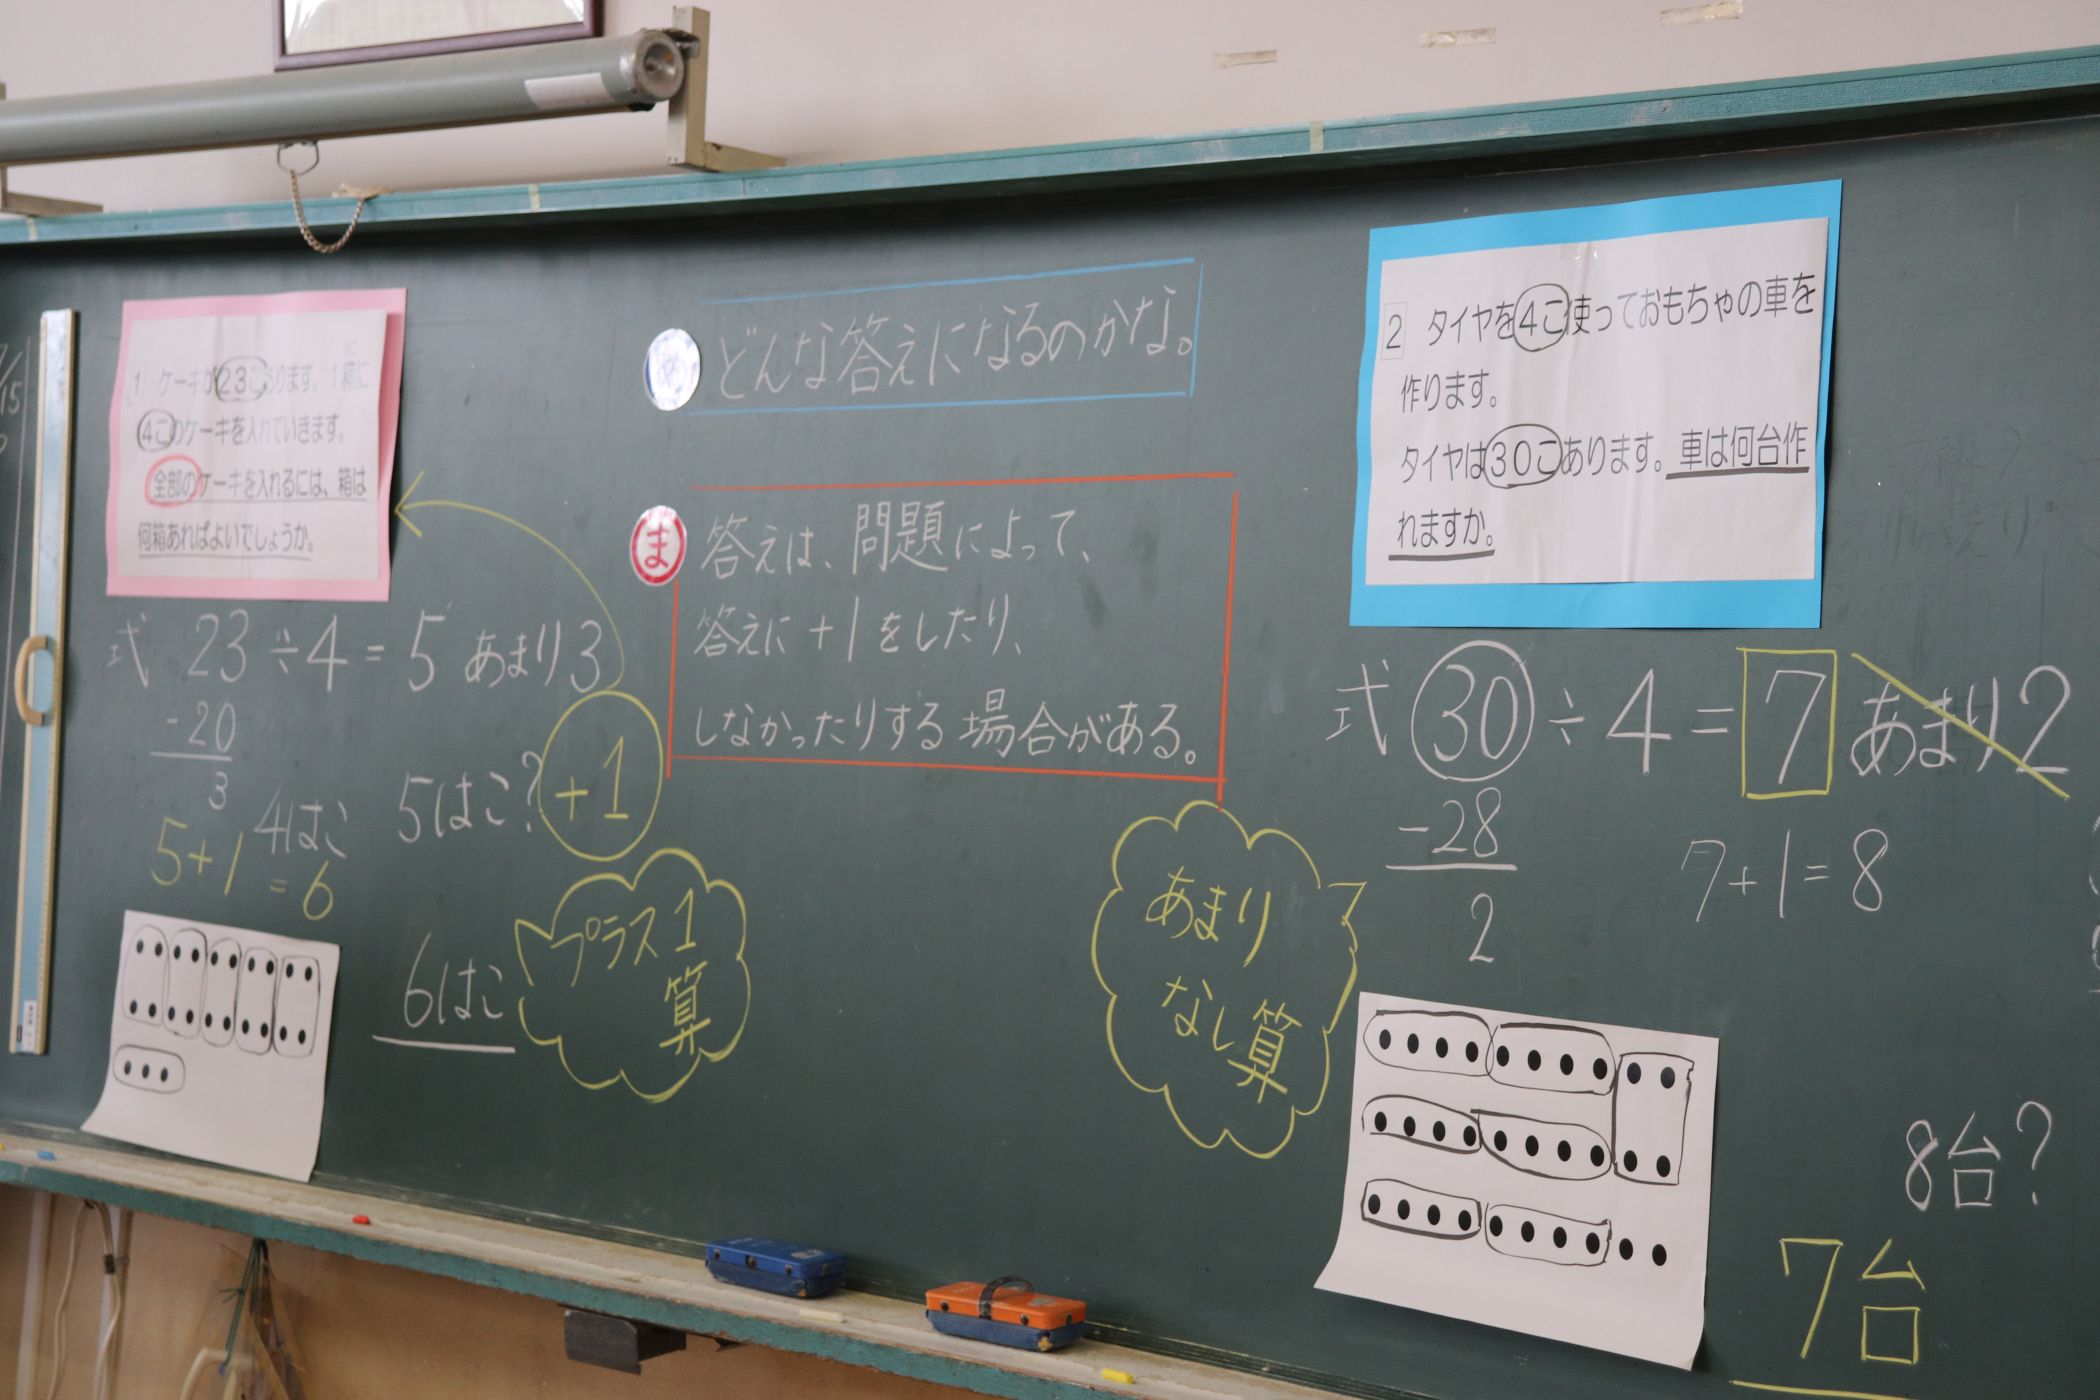 1 ケーキが23こあります。1箱に
4このケーキを入れていきます。
全部のケーキを入れるには、箱は
何箱あればよいでしょうか。
式 23÷4=5あまり3
-20
3
4はこ
5はこ?
+1
5+1=6
6はこ
プラス1
算
め
どんな答えになるのかな。
ま
答えは、問題によって、
答えに+1をしたり、
しなかったりする場合がある。
あまり
なし算
2 タイヤを4こ使っておもちゃの車を
作ります。
タイヤは30こあります。車は何台作
れますか。
式 30÷4=7あまり2
-28
2
7+1=8
8台?
7台